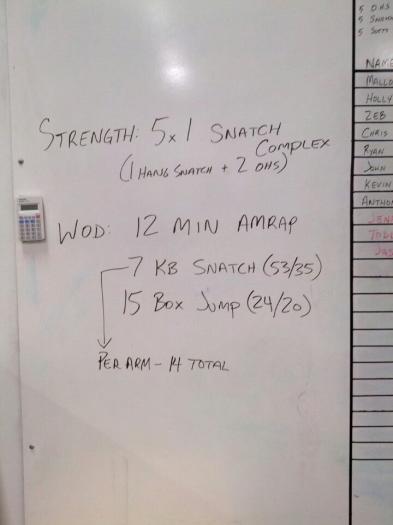 STRENGTH: 5x1 SNATCH
COMPLEX
(1 HANG SNATCH + 2 OHS)
WOD: 12 MIN AMRAP
7 KB SNATCH (53/35)
15 BOX JUMP (24/20)
PER ARM - 14 TOTAL
5 OHS
5
5
NAME
MALLO
HOLLY
ZEB
CHRIS
RYAN
JOHN
KEVIN
ANTHON
JEN
TODD
JAS